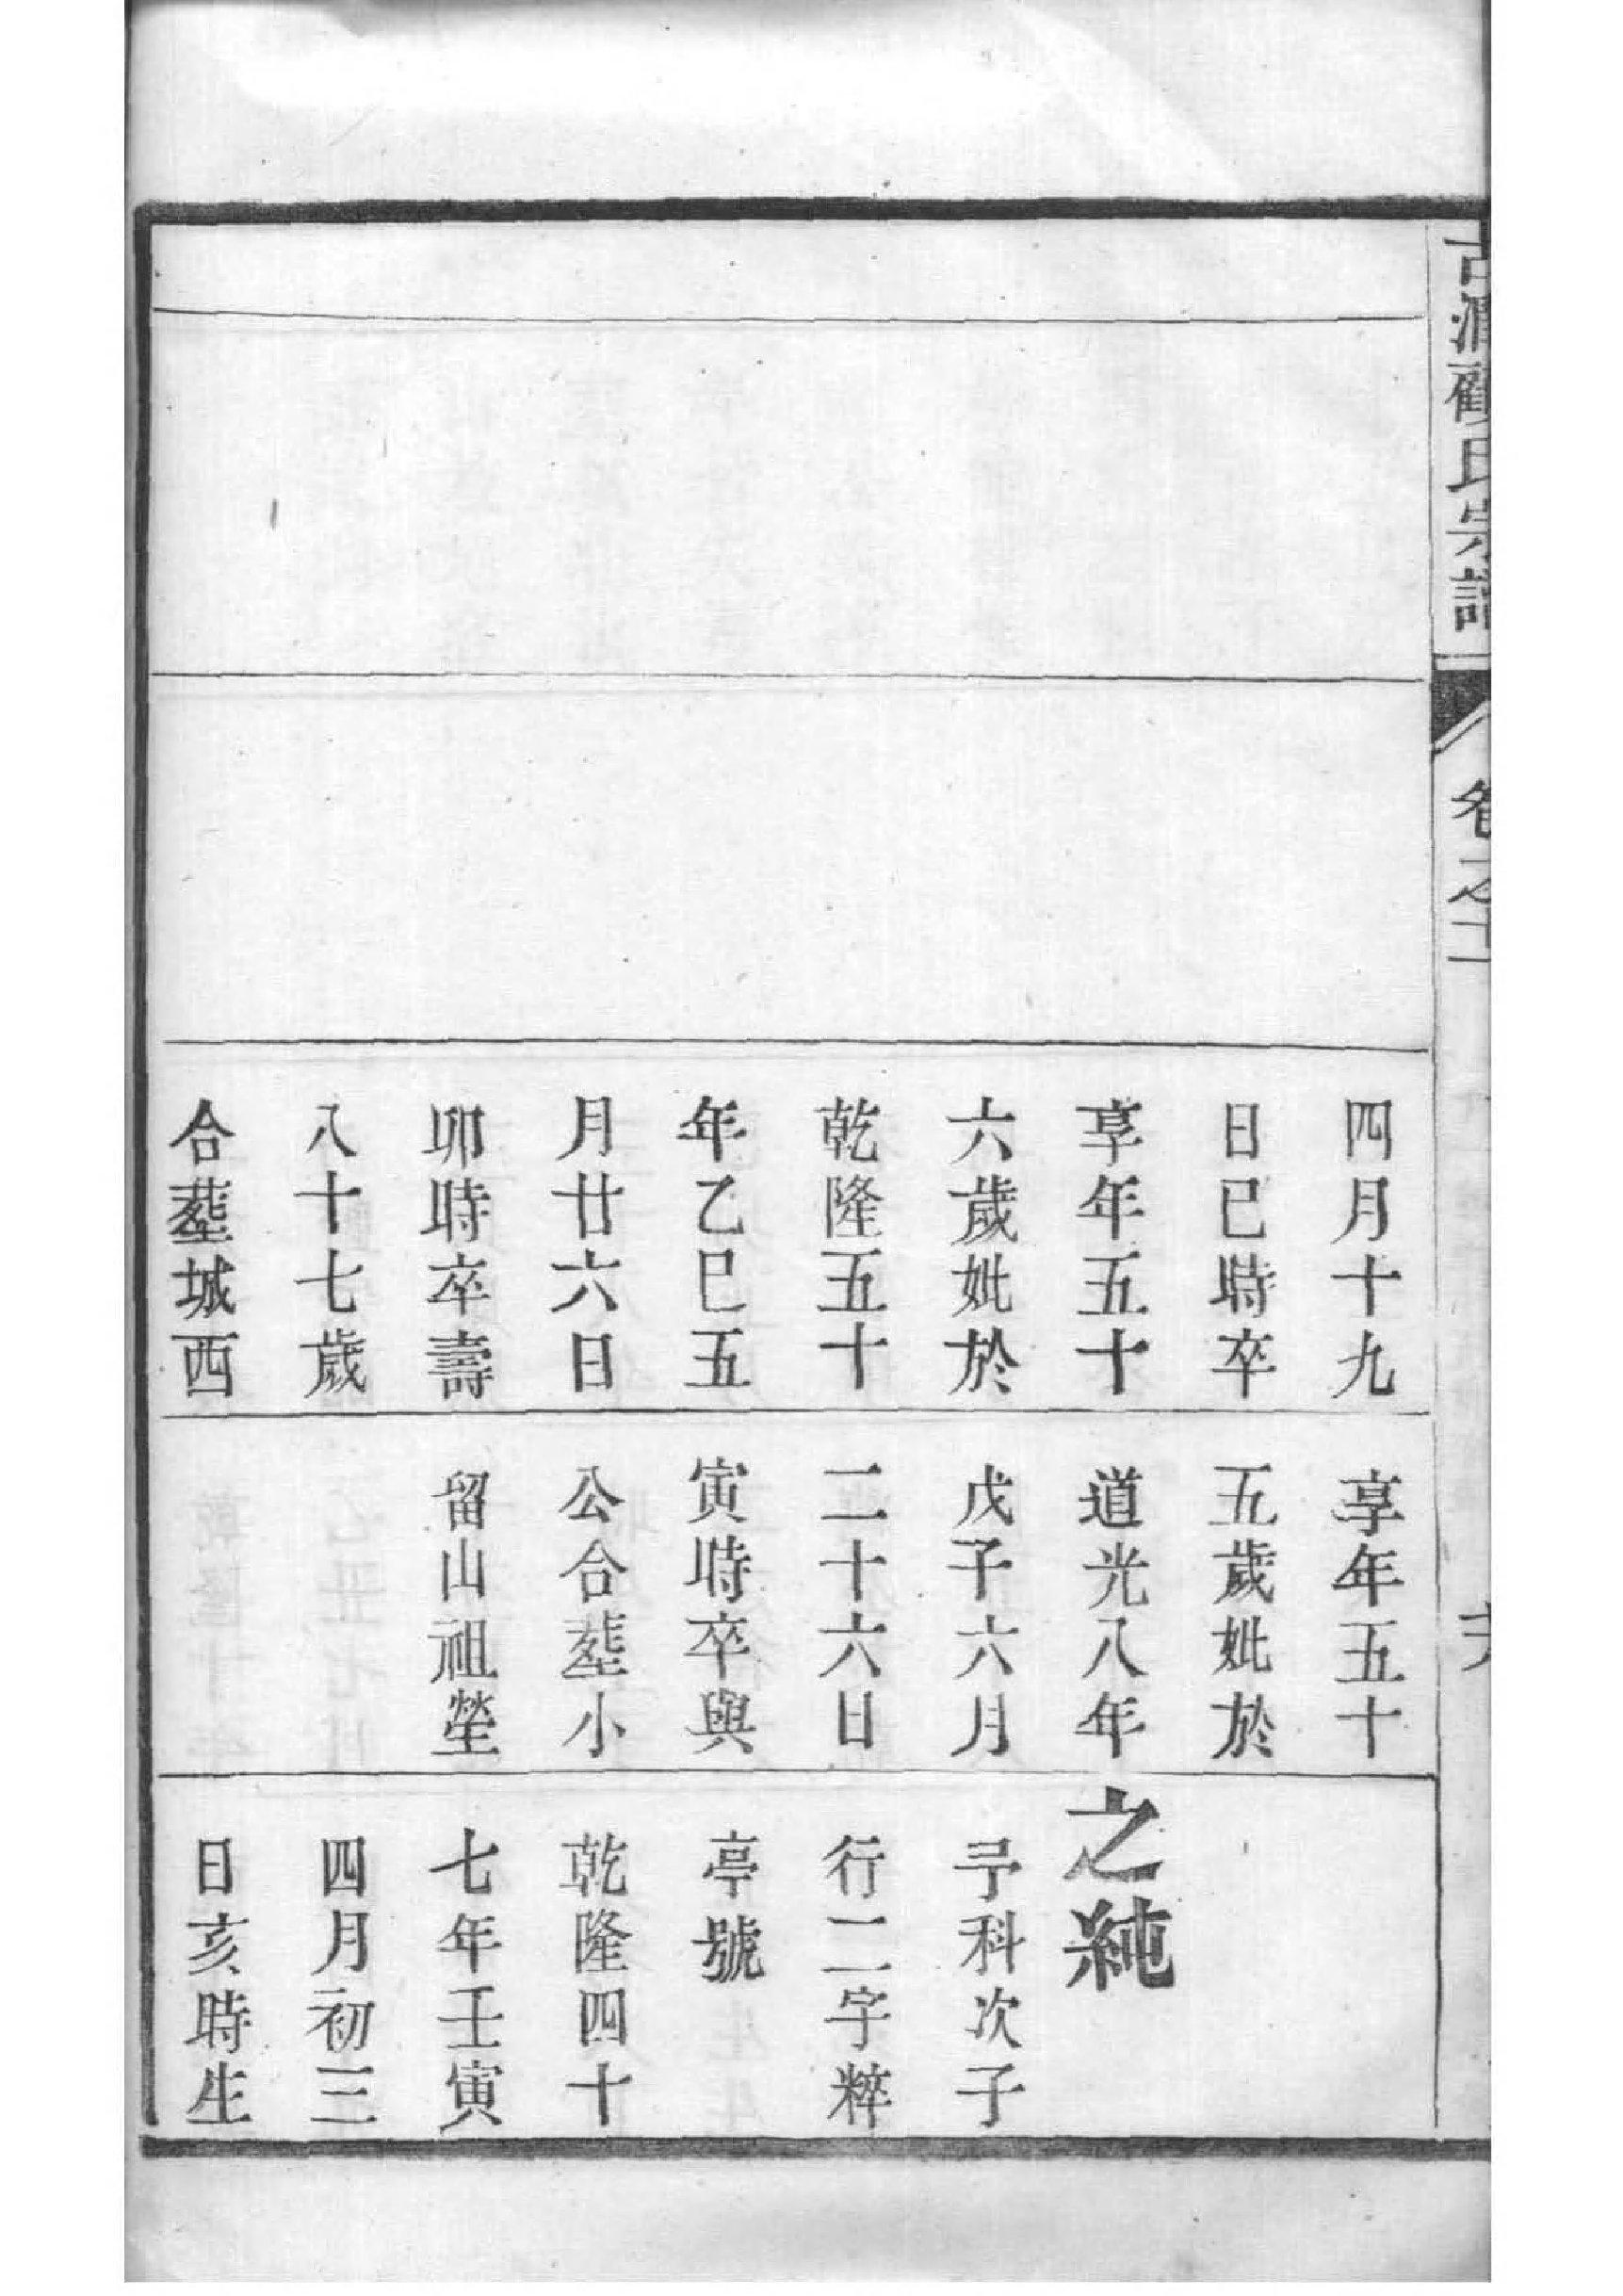 顧氏宗譜
卷之
四月十九
日巳時卒
享年五十
六歲妣於
乾隆五十
年乙巳五
月廿六日
卯時卒壽
八十七歲
合塟城西
享年五十
五歲妣於
道光八年
戊子六月
二十六日
寅時卒與
公合塟小
留山祖塋
之純
予科次子
行二字粹
亭號
乾隆四十
七年壬寅
四月初三
日亥時生